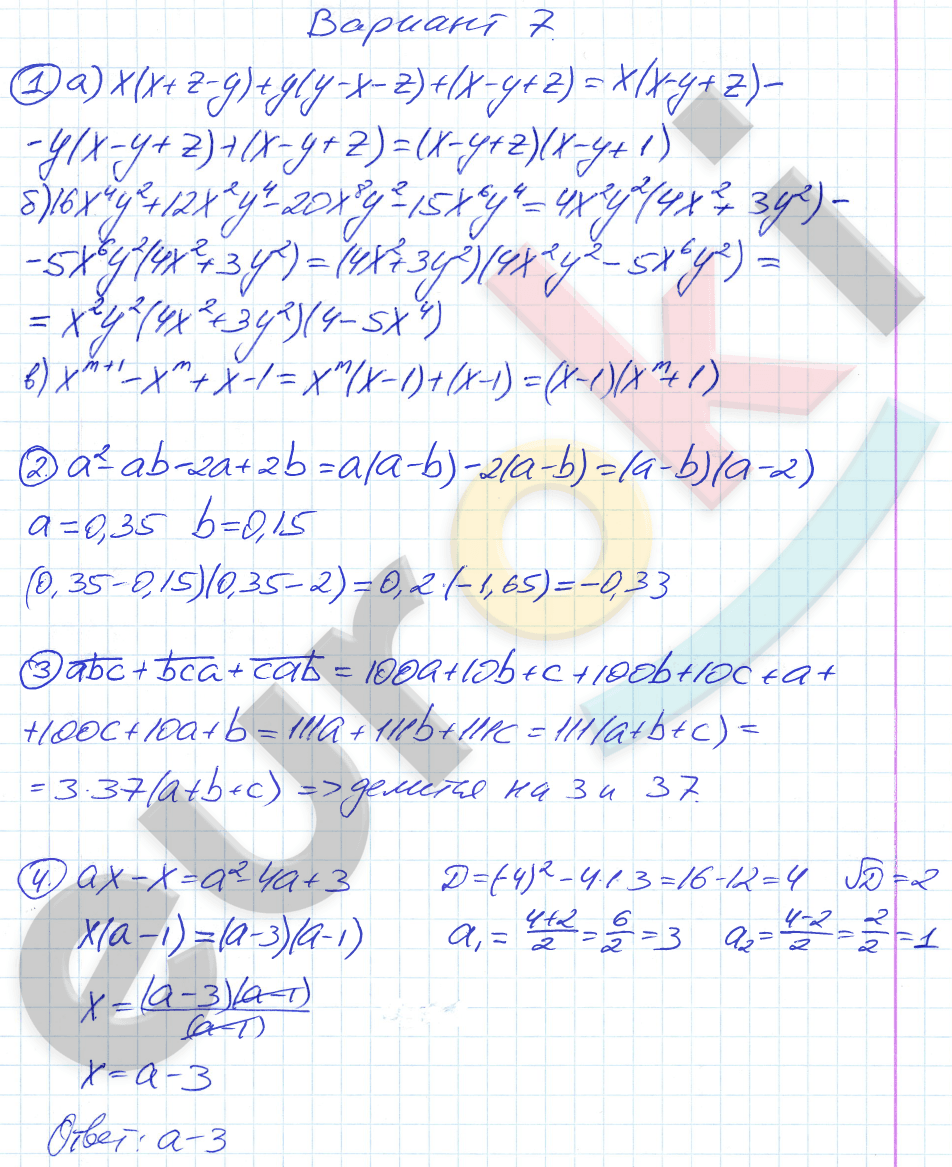 Вариант 7.
① а) x(x+z-y)+y(y-x-z)+(x-y+z)=x(x-y+z)-
-y(x-y+z)+(x-y+z)=(x-y+z)(x-y+1)
б) 16x⁴y²+12x²y⁴-20x⁸y²-15x⁶y⁴=4x²y²(4x²+3y²)-
-5x⁶y²(4x²+3y²)=(4x²+3y²)(4x²y²-5x⁶y²)=
=x²y²(4x²+3y²)(4-5x⁴)
в) xᵐ⁺¹-xᵐ+x-1=xᵐ(x-1)+(x-1)=(x-1)(xᵐ+1)
② a²-ab-2a+2b=a(a-b)-2(a-b)=(a-b)(a-2)
a=0,35 b=0,15
(0,35-0,15)(0,35-2)=0,2·(-1,65)=-0,33
③ a̅b̅c̅+b̅c̅a̅+c̅a̅b̅=100a+10b+c+100b+10c+a+
+100c+10a+b=111a+111b+111c=111(a+b+c)=
=3·37(a+b+c) => делится на 3 и 37.
④ ax-x=a²-4a+3 D=(-4)²-4·1·3=16-12=4 √D=2
x(a-1)=(a-3)(a-1) a₁=(4+2)/2=6/2=3 a₂=(4-2)/2=2/2=1
x=(a-3)(a-1)/(a-1)
x=a-3
Ответ: a-3
euroki